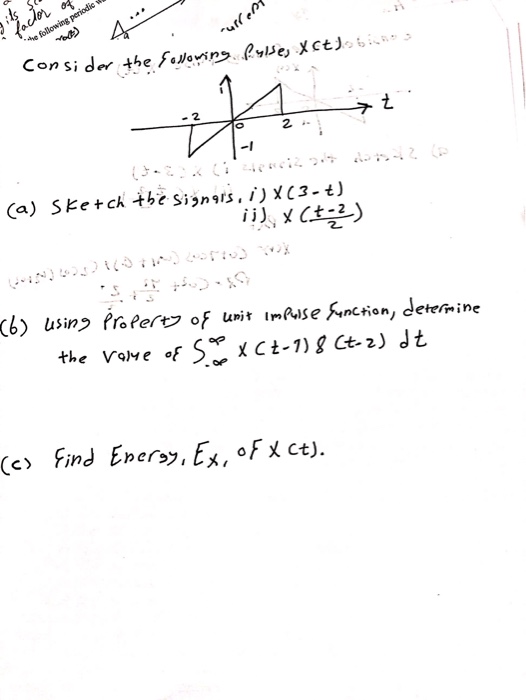 factor of
the following periodic
Consider the following Pulse, X(t).
1
t
-2
0
2
-1
(a) Sketch the signals, i) X(3-t)
ii) X(t-2/2)
(b) using Property of unit impulse function, determine
the value of ∫∞-∞ X(t-1) δ(t-2) dt
(c) Find Energy, Ex, of X(t).